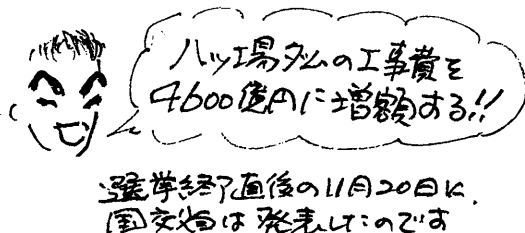 八ッ場ダムの工事費を
4600億円に増額する!!
選挙終了直後の11月20日に、
国交省は発表したのです